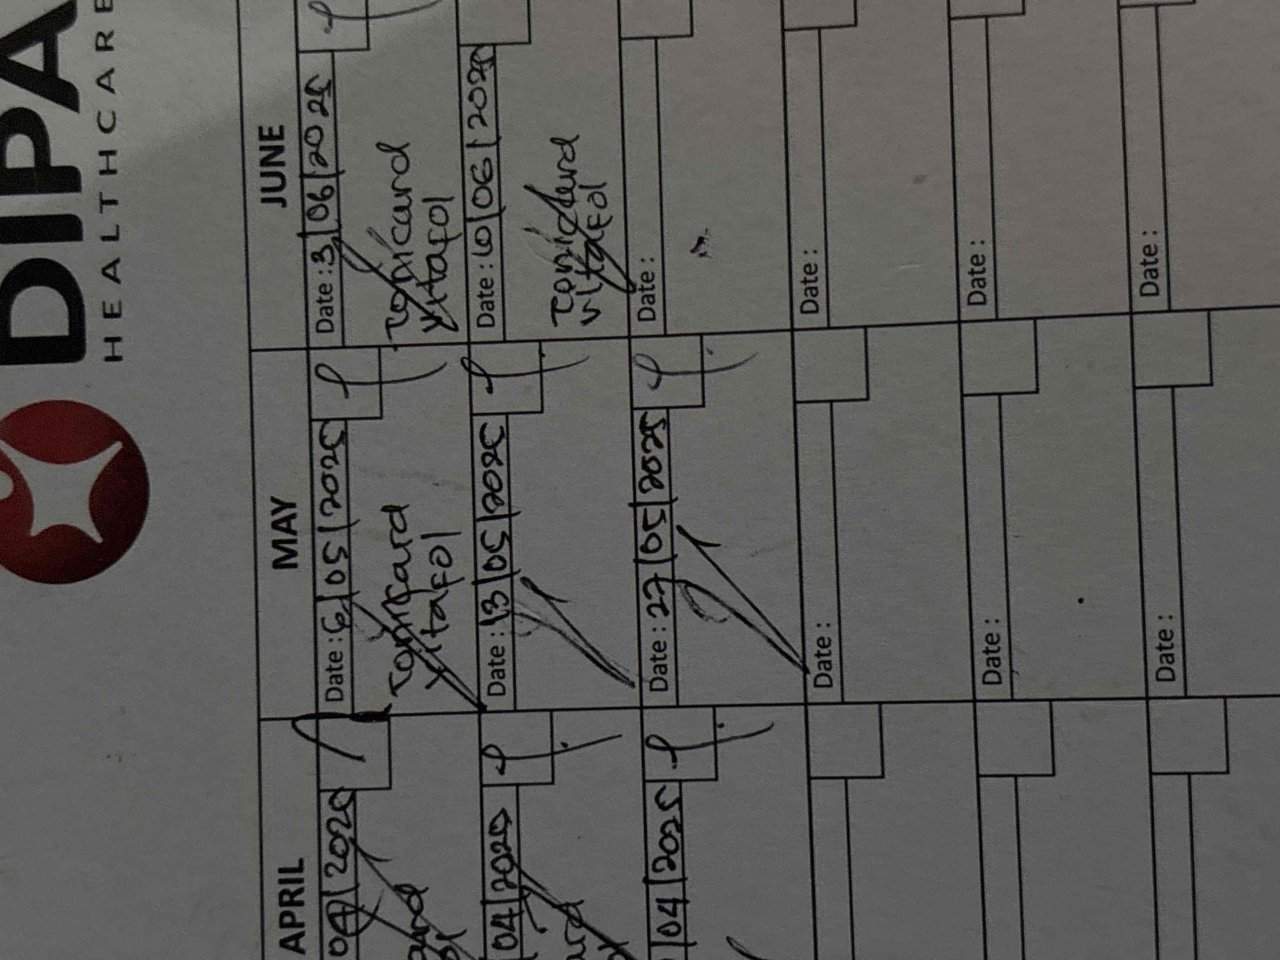 DIPA
HEALTHCARE
APRIL
04/2025
04/2025
04/2025
MAY
Date : 6/05/2025
Tonicard
Vitafol
Date : 13/05/2025
Date : 27/05/2025
Date :
Date :
Date :
JUNE
Date : 3/06/2025
Tonicard
Vitafol
Date : 10/06/2025
Tonicard
Vitafol
Date :
Date :
Date :
Date :